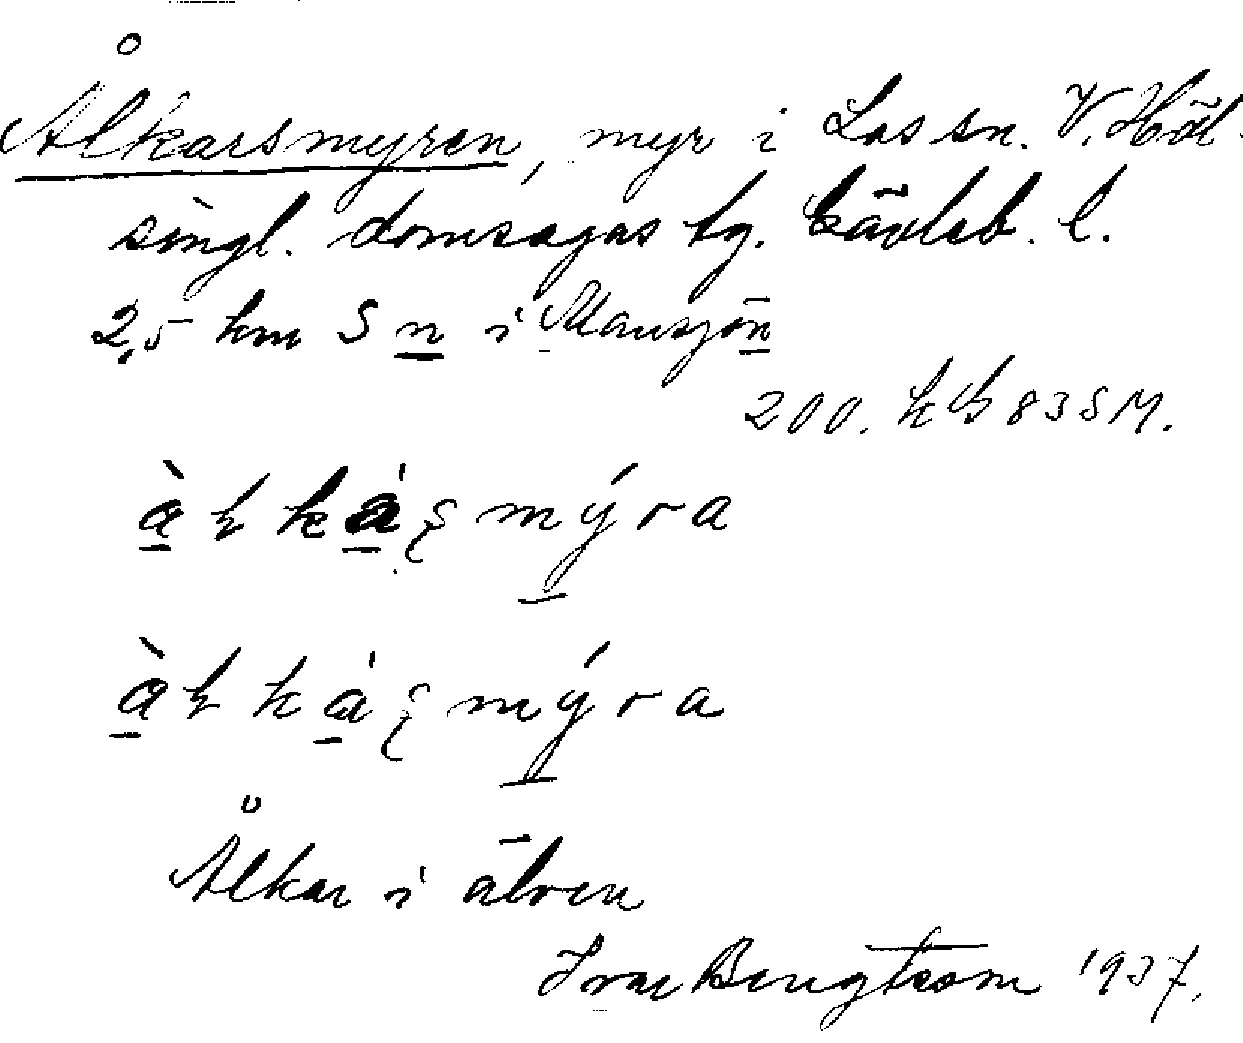 Ålkarsmyren, myr i Los sn. V. Häl-
singl. domsagas tg. Gävleb. l.
2,5 km S n i Mansjön
200. k G 83 S M.
àḷkáșmýra
àḷkáșmýra
Ålkar i älven
Ivar Bengtsson 1937.